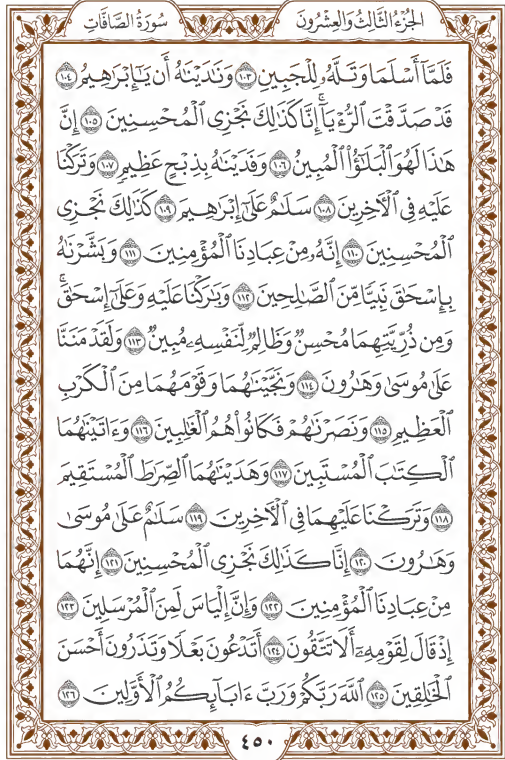 الجزء الثالث والعشرون
سورة الصافات
فَلَمَّآ أَسْلَمَا وَتَلَّهُۥ لِلْجَبِينِ ١٠٣ وَنَٰدَيْنَٰهُ أَن يَٰٓإِبْرَٰهِيمُ ١٠٤
قَدْ صَدَّقْتَ ٱلرُّءْيَآ ۚ إِنَّا كَذَٰلِكَ نَجْزِى ٱلْمُحْسِنِينَ ١٠٥ إِنَّ
هَٰذَا لَهُوَ ٱلْبَلَٰٓؤُا۟ ٱلْمُبِينُ ١٠٦ وَفَدَيْنَٰهُ بِذِبْحٍ عَظِيمٍ ١٠٧ وَتَرَكْنَا
عَلَيْهِ فِى ٱلْأَخِرِينَ ١٠٨ سَلَٰمٌ عَلَىٰٓ إِبْرَٰهِيمَ ١٠٩ كَذَٰلِكَ نَجْزِى
ٱلْمُحْسِنِينَ ١١٠ إِنَّهُۥ مِنْ عِبَادِنَا ٱلْمُؤْمِنِينَ ١١١ وَبَشَّرْنَٰهُ
بِإِسْحَٰقَ نَبِيًّا مِّنَ ٱلصَّٰلِحِينَ ١١٢ وَبَٰرَكْنَا عَلَيْهِ وَعَلَىٰٓ إِسْحَٰقَ ۚ
وَمِن ذُرِّيَّتِهِمَا مُحْسِنٌ وَظَالِمٌ لِّنَفْسِهِۦ مُبِينٌ ١١٣ وَلَقَدْ مَنَنَّا
عَلَىٰ مُوسَىٰ وَهَٰرُونَ ١١٤ وَنَجَّيْنَٰهُمَا وَقَوْمَهُمَا مِنَ ٱلْكَرْبِ
ٱلْعَظِيمِ ١١٥ وَنَصَرْنَٰهُمْ فَكَانُوا۟ هُمُ ٱلْغَٰلِبِينَ ١١٦ وَءَاتَيْنَٰهُمَا
ٱلْكِتَٰبَ ٱلْمُسْتَبِينَ ١١٧ وَهَدَيْنَٰهُمَا ٱلصِّرَٰطَ ٱلْمُسْتَقِيمَ
١١٨ وَتَرَكْنَا عَلَيْهِمَا فِى ٱلْأَخِرِينَ ١١٩ سَلَٰمٌ عَلَىٰ مُوسَىٰ
وَهَٰرُونَ ١٢٠ إِنَّا كَذَٰلِكَ نَجْزِى ٱلْمُحْسِنِينَ ١٢١ إِنَّهُمَا
مِنْ عِبَادِنَا ٱلْمُؤْمِنِينَ ١٢٢ وَإِنَّ إِلْيَاسَ لَمِنَ ٱلْمُرْسَلِينَ ١٢٣
إِذْ قَالَ لِقَوْمِهِۦٓ أَلَا تَتَّقُونَ ١٢٤ أَتَدْعُونَ بَعْلًا وَتَذَرُونَ أَحْسَنَ
ٱلْخَٰلِقِينَ ١٢٥ ٱللَّهَ رَبَّكُمْ وَرَبَّ ءَابَآئِكُمُ ٱلْأَوَّلِينَ ١٢٦
٤٥٠